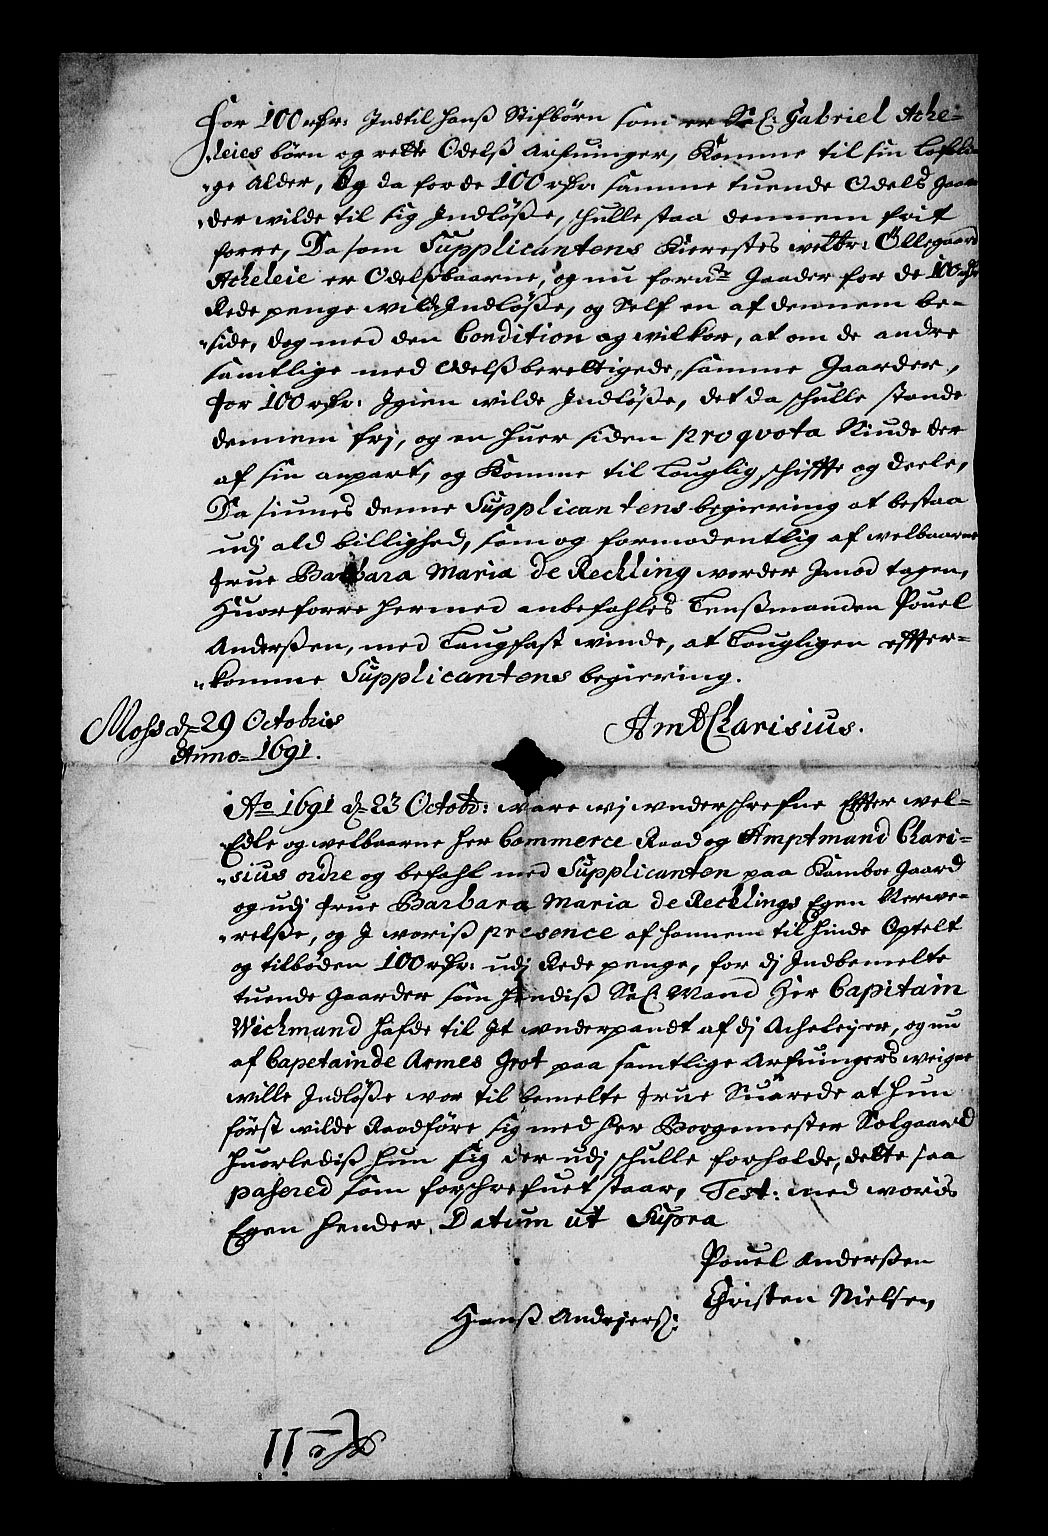 for 100 rdr: Indtil hanß Stifbørn som er Sl: Gabriel Ache-
leies børn og rette Odelß Arfuinger, Komme til sin Lofli-
ge Alder, Og da forde 100 rdr: samme tuende Odels gaar-
der wilde til sig Indløße, schulle staa dennem frit
forre, Da som Supplicantens Kierestes welbr: Ôllegaard
Acheleie er Odelßbaarne, og nu forne Gaader for de 100 rdr
Rede penge wilde Indløße, og Self en af dennem be-
side, dog med den Condition og wilkor, at om de andre
samtlige med Odelß berettigede, samme Gaarder,
for 100 rdr: Igien wilde Indløße, det da schulle stande
dennem frj, og en huer siden pro qvota Niude der
af sin anpart, og Komme til Louglig schiffte og deele,
Da siunes denne Supplicantens begiering at bestaa
udj ald billighed, som og formodentlig af welbaarne
frue Barbara Maria de Reckling worder Imod tagen,
Huorforre hermed anbefahles Lenßmanden Pouel
Anderßen, med Laugfast winde, at Lougligen effter-
komme Supplicantens begiering.
Moss d= 29 Octobris
Anno= 1691.
Am Clarisius.
Ao 1691 d= 23 Octobr: ware wj underschrefne Efter wel-
Edle og welbaarne Her Commerce Raad og Amptmand Clari-
sius ordre og befahl med Supplicanten paa Kamboe Gaard
og udj frue Barbara Maria de Recklings Egen Nerwe-
relße, og I woriß presence af hannem til hinde Optelt
og tilbøden 100 rdr: udj Rede penge, for dj Indbemelte
tuende Gaarder som hendiß Sl: Mand Her Capitain
Wichmand hafde til It underpandt af dj Acheleyer, og nu
af Capetain de Armes Grot paa samtlige Arfuingers weigne
wille Indløße wor til bemelte frue Suarede at hun
først wilde Raadføre sig med Her Borgemester Solgaard
huorlediß hun sig der udj schulle forholde, dette saa
passered som forschrefuet staar, Test: med woris
Egen hender, Datum ut Supra
Pouel Anderßen
Christen Nielsen,
Hanß Andersß: